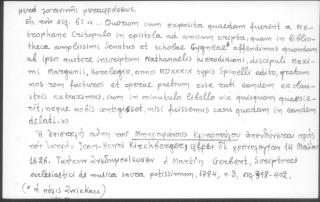 μενα γραμμὴν μεταφράσεως.
Ἐν τῇ σελ. 6: «– Quorum cum exposita quaedam fuerint a Metrophane Critopulo in epistola ad amicum scripta, quam in bibliotheca amplissimi Senatus et scholae Cygneae* offendimus quondam ab ipso autore inscriptam Nathanaelis hierodiaconi, discipuli maximi Margunii, Horologio, anno MDXXXIX typis Spinelli edito, gratum nos rem facturos et operae pretium esse rati eandem ex claustris extraximus, cum in minutulo libello vix quisquam quaesierit, neque nobis contigisset, nisi fuissemus casu quodam in eandem delati.»
Ἡ ἐπιστολὴ αὕτη τοῦ Μητροφάνους Κριτοπούλου ἀπευθύνεται πρὸς
τὸν Jean-Henri Kirchberger, φέρει δὲ χρονολογίαν 14 Μαΐου
1626. Martin Gerbert, Scriptores
ecclesiastici de musica sacra potissimum, 1784, τ. 3, σελ. 398-402.
(* ἡ πόλις Zwickau)